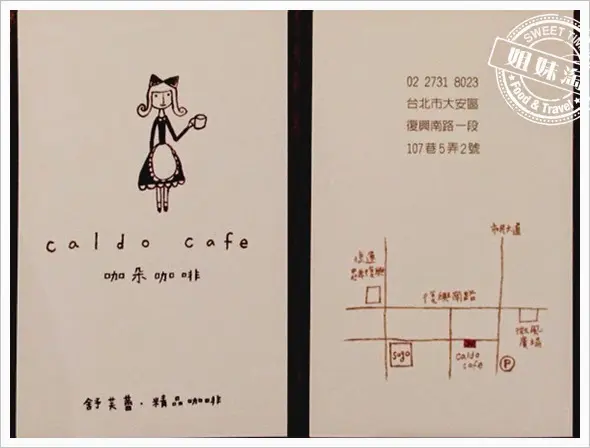 caldo cafe
咖朵咖啡
舒芙蕾·精品咖啡
SWEET TIME
姐妹淘
Food & Travel
02 2731 8023
台北市大安區
復興南路一段
107巷5弄2號
市民大道
捷運
忠孝復興
復興南路
微風
廣場
sogo
caldo
cafe
P